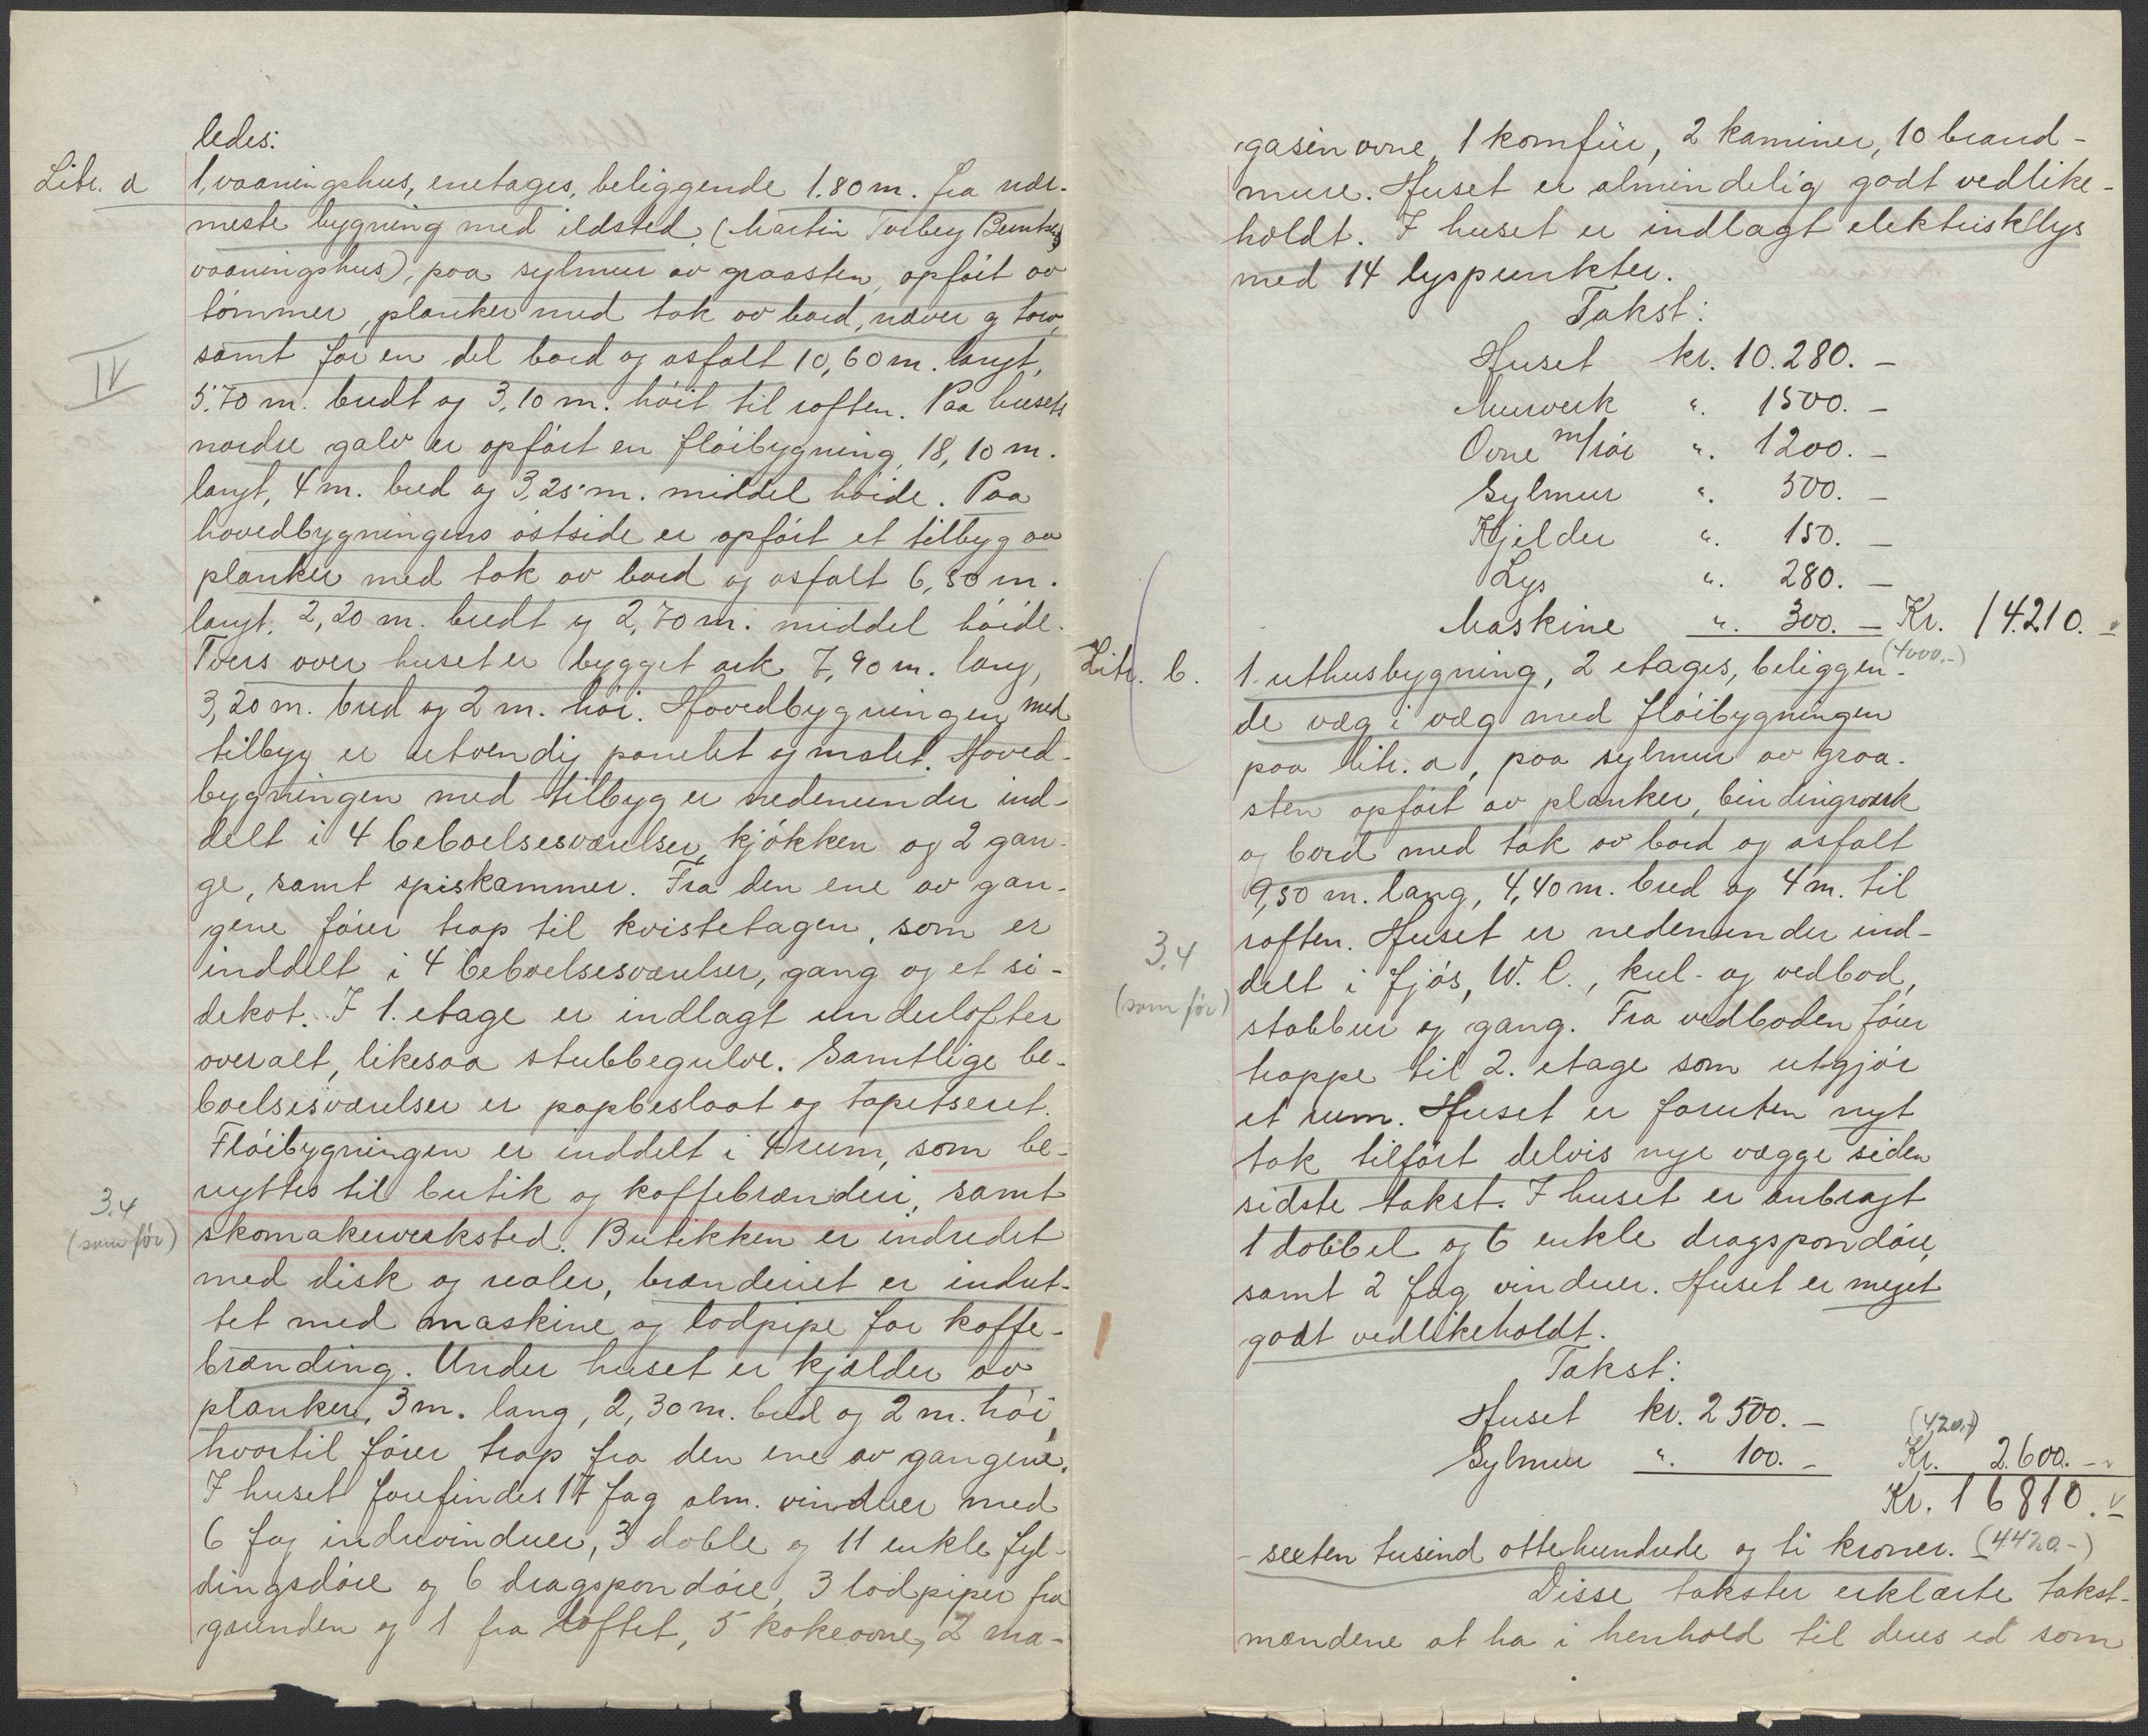 ledes:
Litr. a 1, vaaningshus, enetages, beliggende 1.80 m. fra nær-
meste bygning med ildsted (Martin Torberg
vaaningshus), paa sylmur av graasten, opført av
tømmer, planker med tak av bord, næver og torv,
samt for en del bord og asfalt 10,60 m. langt,
IV
5.70 m. bredt og 3,10 m. høit til raften. Paa husets
nordre gavl er opført en fløibygning, 18,10 m.
langt, 4 m. bred og 3,25 m. middel høide. Paa
hovedbygningens østside er opført et tilbyg av
planker med tak av bord og asfalt 6,50 m.
langt, 2,20 m. bredt og 2,70 m. middel høide.
Tvers over huset er bygget ark 7,90 m. lang,
3,20 m. bred og 2 m. høi. Hovedbygningen med
tilbyg er utvendig panelet og malet. Hoved-
bygningen med tilbyg er nedenunder ind-
delt i 4 beboelsesværelser, kjøkken og 2 gan-
ge, samt spiskammer. Fra den ene av gan-
gene fører trap til kvistetagen, som er
inddelt i 4 beboelsesværelser, gang og et si-
dekot. I 1. etage er indlagt underlofter
overalt, likesaa stubbegulve. Samtlige be-
boelsesværelser er papbeslaat og tapetseret.
Fløibygningen er inddelt i 4 rum, som be-
nyttes til butik og kaffebrænderi, samt
3.4
(som før)
skomakerverksted. Butikken er indredet
med disk og reoler, brænderiet er indret-
tet med maskine og lodpipe for kaffe-
brænding. Under huset er kjælder av
planker, 3 m. lang, 2,30 m. bred og 2 m. høi,
hvortil fører trap fra den ene av gangene.
I huset forefindes 17 fag alm. vinduer med
6 fag indrevinduer, 3 doble og 11 enkle fyl-
dingsdøre og 6 dragspondøre, 3 lodpiper fra
grunden og 1 fra loftet, 5 kokeovne, 2 ma-
gasinovne, 1 komfür, 2 kaminer, 10 brand-
mure. Huset er almindelig godt vedlike-
holdt. I huset er indlagt elektrisk lys
med 14 lyspunkter.
Takst:
Huset kr. 10.280. -
Murverk ". 1500. -
Ovne m/rør ". 1200. -
Sylmur ". 500. -
Kjelder ". 150. -
Lys ". 280. -
Maskine ". 300. - Kr. 14.210. -
(4000.-)
Litr. b. 1. uthusbygning, 2 etages, beliggen-
de væg i væg med fløibygningen
paa litr. a, paa sylmur av graa-
sten opført av planker, bindingsverk
og bord med tak av bord og asfalt
9,50 m. lang, 4,40 m. bred og 4 m. til
raften. Huset er nedenunder ind-
3.4
delt i fjøs, W. C., kul- og vedbod,
(som før)
stabbur og gang. Fra vedboden fører
trappe til 2. etage som utgjør
et rum. Huset er foruten nyt
tak tilført delvis nye vægge siden
sidste takst. I huset er anbragt
1 dobbel og 6 enkle dragspondøre,
samt 2 fag vinduer. Huset er meget
godt vedlikeholdt.
Takst:
Huset kr. 2500. -
(420.-)
Sylmur ". 100. - Kr. 2.600. -
Kr. 16810. -
- sexten tusind ottehundrede og ti kroner. (4420.-)
Disse takster erklærte takst-
mændene at ha i henhold til deres ed som